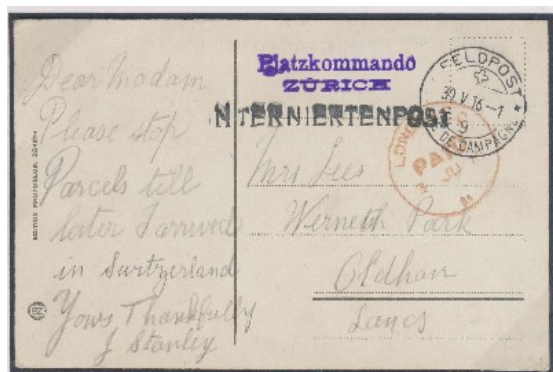 Dear Madam
Please stop
Parcels till
later I arrived
in Switzerland
Yours Thankfully
J Stanley
Platzkommando
ZÜRICH
INTERNIERTENPOST
FELDPOST
30 V 16-1
9
DE CAMPAGNE
LONDON
PAID
JU
Mrs Lees
Werneth Park
Oldham
Lancs
EDITION PHOTOGLOB, ZÜRICH